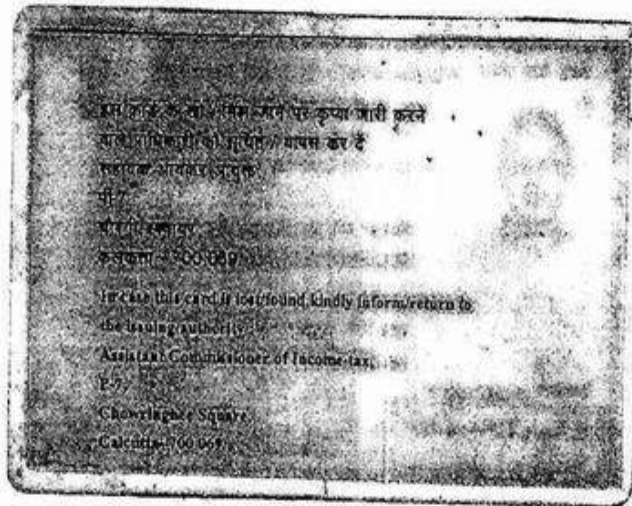 इस कार्ड के खो / मिल जाने पर कृप्या जारी करने
वाले प्राधिकारी को सूचित / वापस कर दें
सहायक आयकर आयुक्त
पी-7
चौरंगी स्क्वायर
कलकत्ता - 700 069
In case this card is lost/found, kindly inform/return to
the issuing authority
Assistant Commissioner of Income-tax,
P-7,
Chowringhee Square
Calcutta-700 069